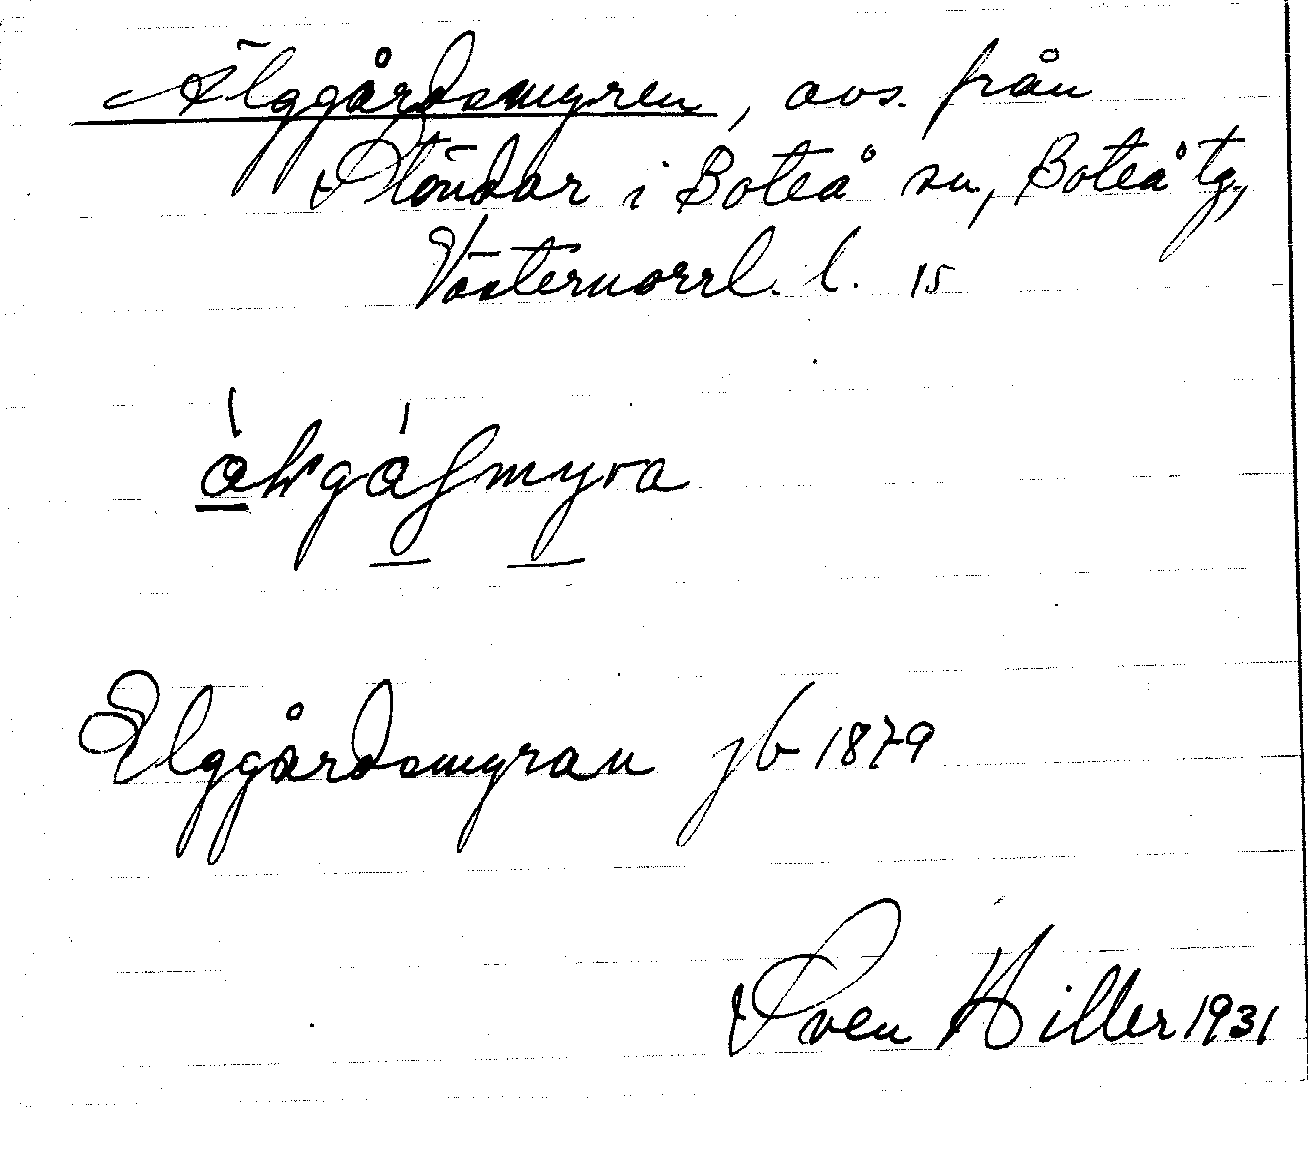 Älggårdsmyren, avs. från
Stöndar i Boteå sn, Boteå tg,
Västernorrl. l. 15
Elggårdsmyran jb 1879
Sven Hiller 1931